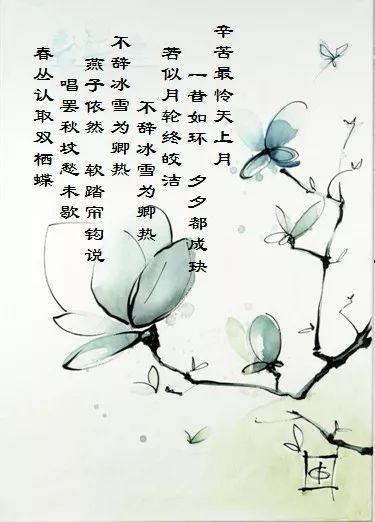 辛苦最怜天上月
一昔如环 夕夕都成玦
若似月轮终皎洁
不辞冰雪为卿热
不辞冰雪为卿热
燕子依然 软踏帘钩说
唱罢秋坟愁未歇
春丛认取双栖蝶